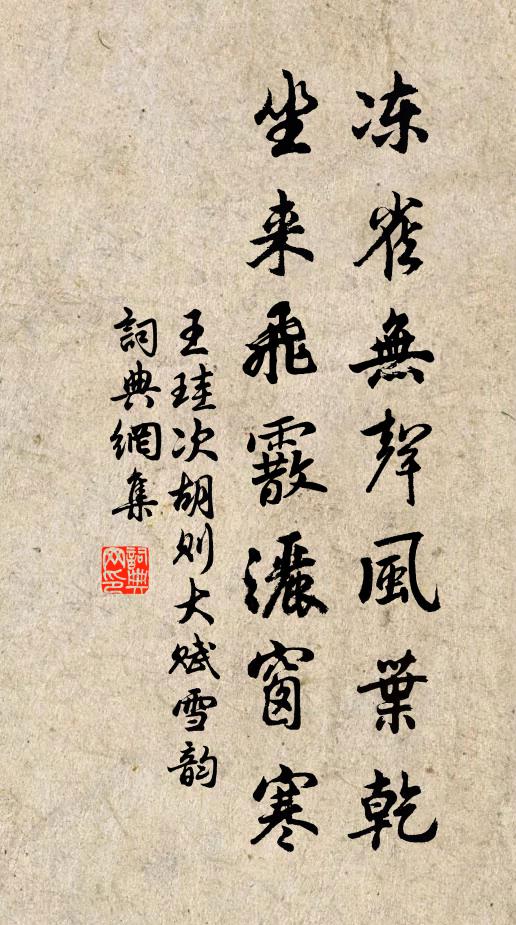 凍雀無聲風葉乾
坐来飛霰灑窗寒
王珪次胡則大賦雪韵
詞典網集
詞典網印